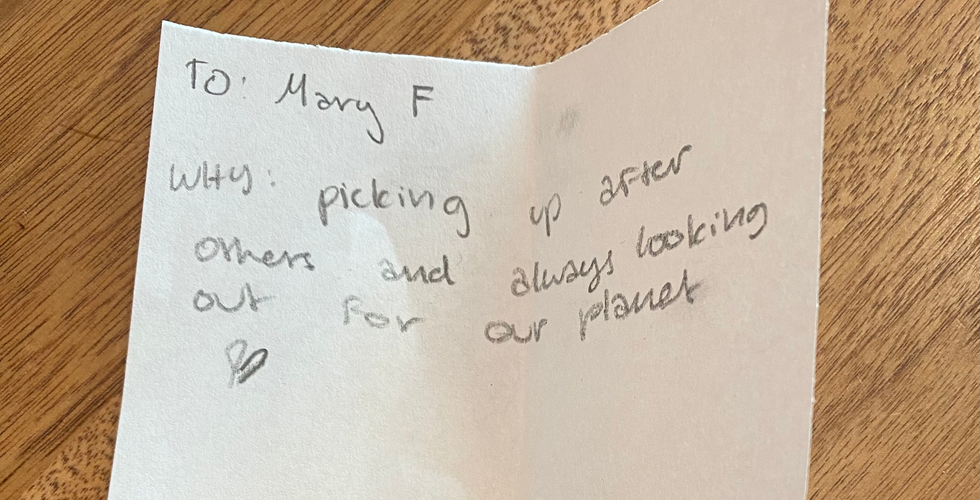 TO: Mary F
WHY: picking up after
others and always looking
out for our planet